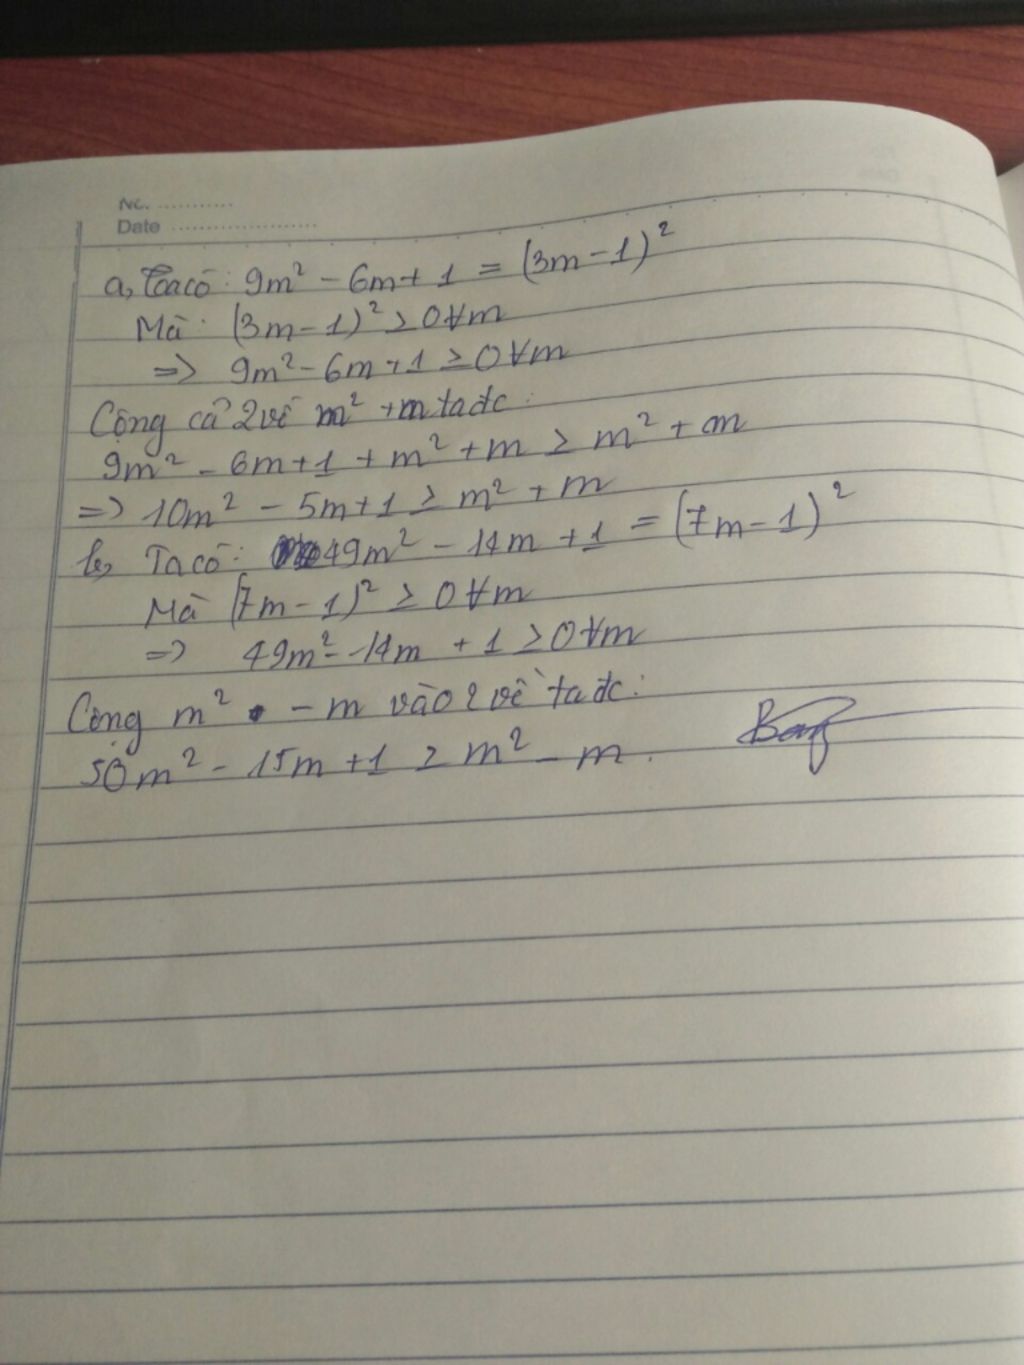 No. ............
Date ......................
a, Ta có: 9m² - 6m + 1 = (3m - 1)²
Mà: (3m - 1)² ≥ 0 ∀m
=> 9m² - 6m + 1 ≥ 0 ∀m
Cộng cả 2 vế m² + m ta đc:
9m² - 6m + 1 + m² + m ≥ m² + m
=> 10m² - 5m + 1 ≥ m² + m
b, Ta có: 49m² - 14m + 1 = (7m - 1)²
Mà (7m - 1)² ≥ 0 ∀m
=> 49m² - 14m + 1 ≥ 0 ∀m
Cộng m² - m vào 2 vế ta đc:
50m² - 15m + 1 ≥ m² - m.